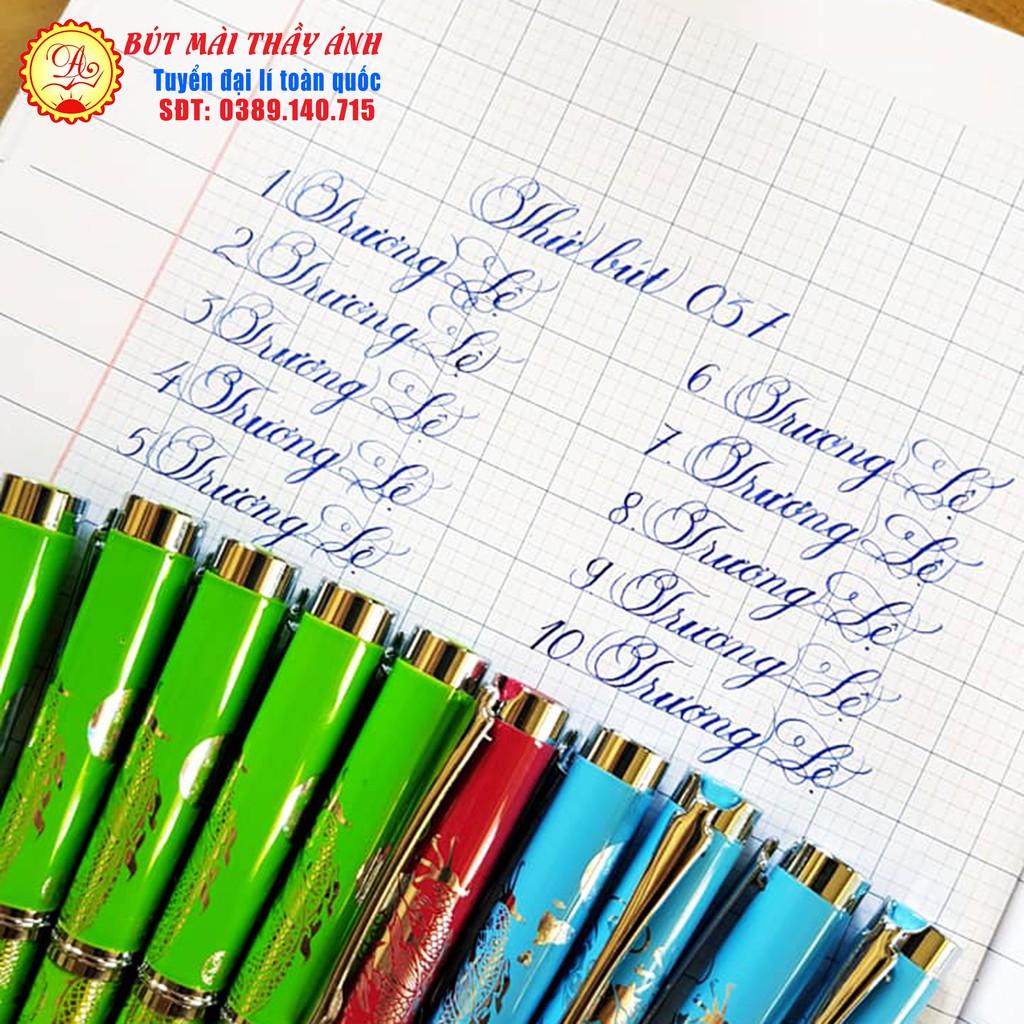 BÚT MÀI THẦY ÁNH
Tuyển đại lí toàn quốc
SĐT: 0389.140.715
Thử bút 037
1 Trương Lệ
2 Trương Lệ
3 Trương Lệ
4 Trương Lệ
5 Trương Lệ
6 Trương Lệ
7. Trương Lệ
8. Trương Lệ
9 Trương Lệ
10. Trương Lệ